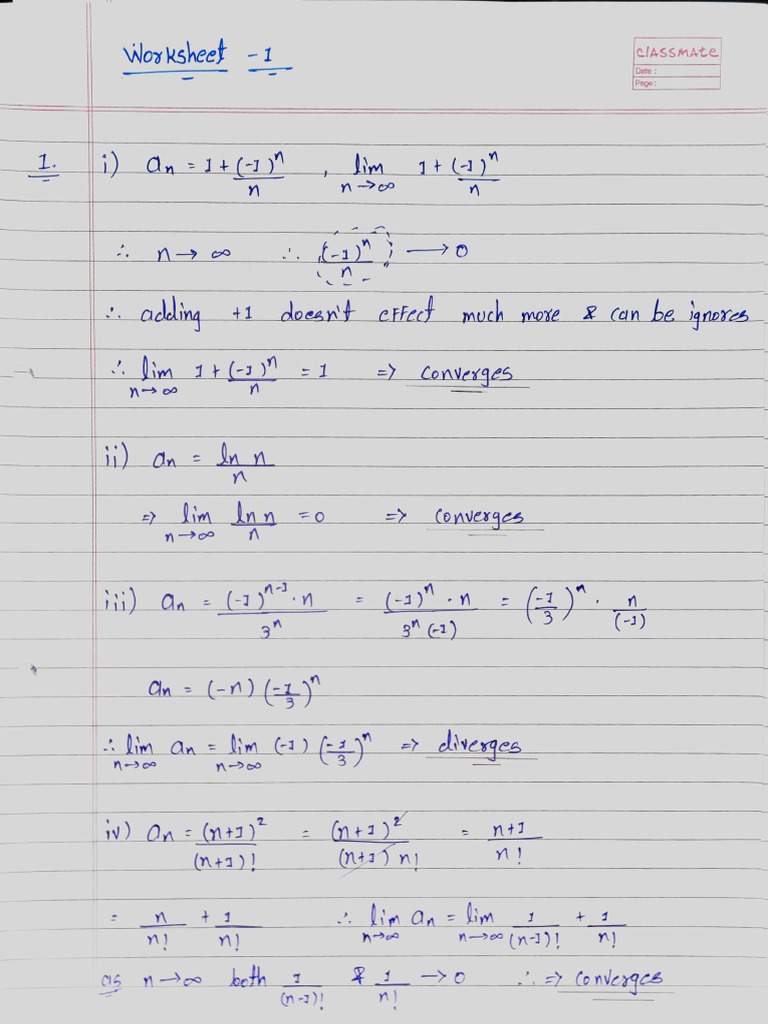 Worksheet - 1
classmate
Date :
Page :
1. i) an = 1 + (-1)^n/n , lim n→∞ 1 + (-1)^n/n
∴ n → ∞ ∴ (-1)^n/n → 0
∴ adding +1 doesn't effect much more & can be ignores
∴ lim n→∞ 1 + (-1)^n/n = 1 => converges
ii) an = ln n/n
=> lim n→∞ ln n/n = 0 => converges
iii) an = (-1)^(n-1) · n/3^n = (-1)^n · n/3^n (-1) = (-1/3)^n · n/(-1)
an = (-n) (-1/3)^n
∴ lim n→∞ an = lim n→∞ (-1) (-1/3)^n => diverges
iv) an = (n+1)^2/(n+1)! = (n+1)^2/(n+1) n! = n+1/n!
= n/n! + 1/n! ∴ lim n→∞ an = lim n→∞ 1/(n-1)! + 1/n!
as n → ∞ both 1/(n-1)! & 1/n! → 0 ∴ => converges